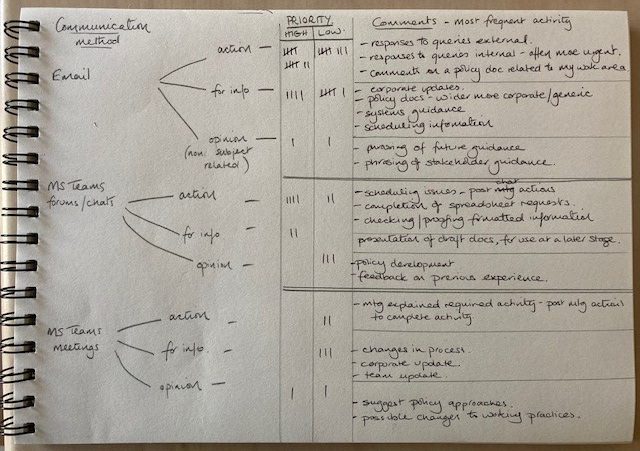 Communication method
PRIORITY
HIGH LOW
Comments - most frequent activity
Email
action -
- responses to queries external.
- responses to queries internal - often more urgent.
- comments on a policy doc related to my work area
for info -
- corporate updates.
- policy docs - wider more corporate/generic
- systems guidance
- scheduling information
opinion -
(non subject related)
- phrasing of future guidance
- phrasing of stakeholder guidance.
MS Teams forums/chats
action
- scheduling issues - post mtg chat actions
- completion of spreadsheet requests.
- checking/proofing formatted information
for info -
presentation of draft docs, for use at a later stage.
opinion -
- policy development
- feedback on previous experience.
MS Teams meetings
action -
- mtg explained required activity - post mtg actions
to complete activity
for info. -
- changes in process.
- corporate update.
- team update.
opinion -
- suggest policy approaches.
- possible changes to working practices.